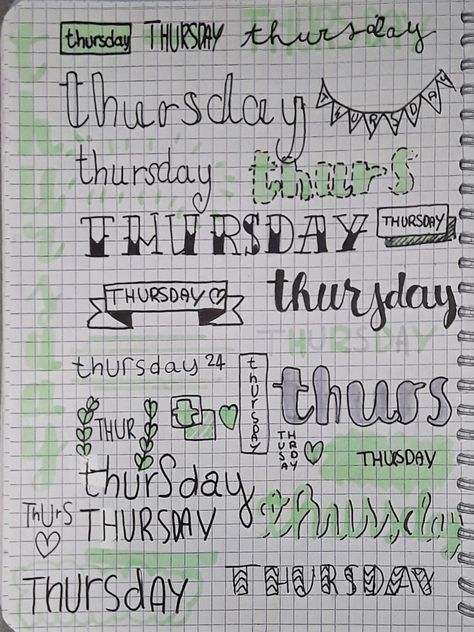 thursday THURSDAY thursday
thursday THURSDAY
thursday thurs
THURSDAY THURSDAY
THURSDAY thursday
THURSDAY
thursday 24 thursday thurs
THUR
TH
UR
SD
AY
THUSDAY
thursday
Thurs THURSDAY
Thursday THURSDAY